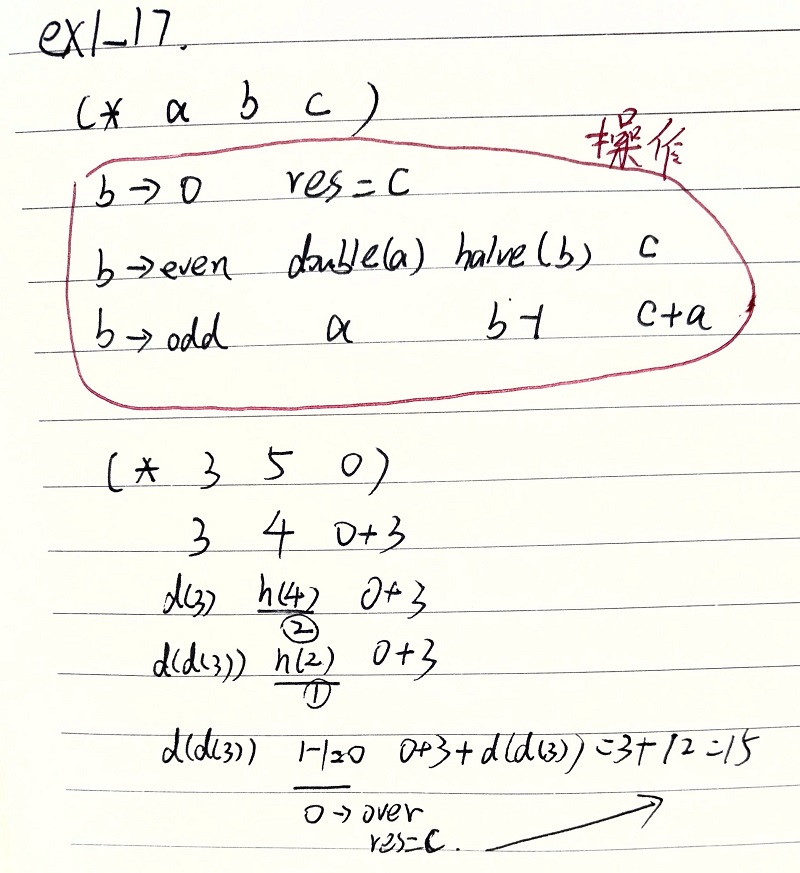 ex1_17.
(* a b c)
操作
b → 0 res = c
b → even double(a) halve(b) c
b → odd a b-1 c+a
(* 3 5 0)
3 4 0+3
d(3) h(4) 0+3
②
d(d(3)) h(2) 0+3
①
d(d(3)) 1-1=0 0+3+d(d(3)) = 3+12=15
0 → over
res=c.